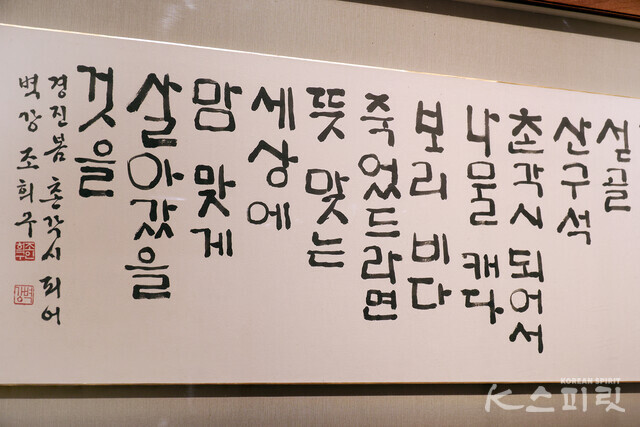 산구석
촌각시 되어서
나물 캐다
보리 비다
죽었드라면
뜻 맞는
세상에
맘 맞게
살아갔을
것을
경진봄 촌각시 되어
벽강 조희구
KOREAN SPIRIT
K스피릿